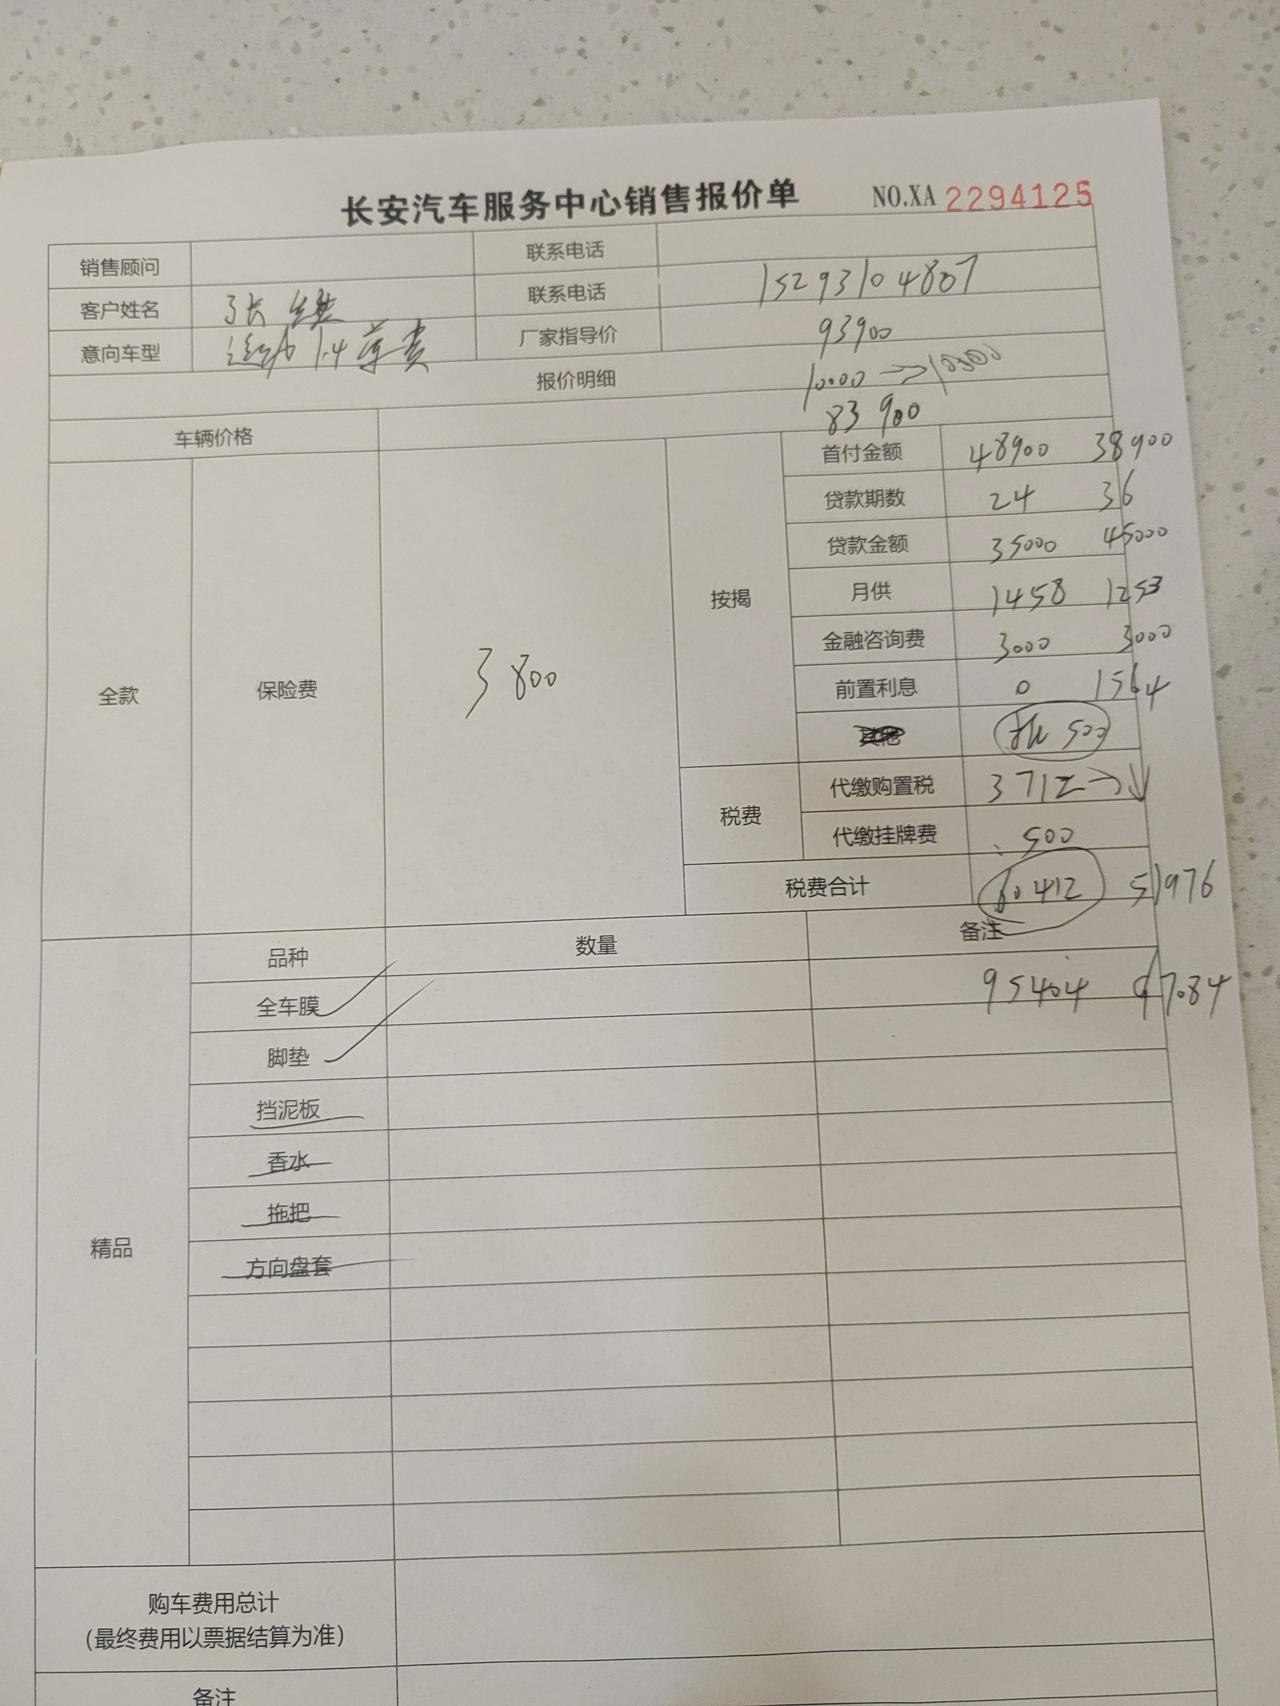 长安汽车服务中心销售报价单 NO.XA 2294125
销售顾问 联系电话
客户姓名 张 联系电话 15293104807
意向车型 1.4 尊贵 厂家指导价 93900
报价明细 10000 → 10300
车辆价格 83900
全款 保险费 3800
按揭 首付金额 48900 38900
贷款期数 24 36
贷款金额 35000 45000
月供 1458 1253
金融咨询费 3000 3000
前置利息 0 1564
500
税费 代缴购置税 3712 → ↓
代缴挂牌费 500
税费合计 60412 51976
精品 品种 数量 备注
全车膜 95404 97084
脚垫
挡泥板
香水
拖把
方向盘套
购车费用总计
（最终费用以票据结算为准）
备注